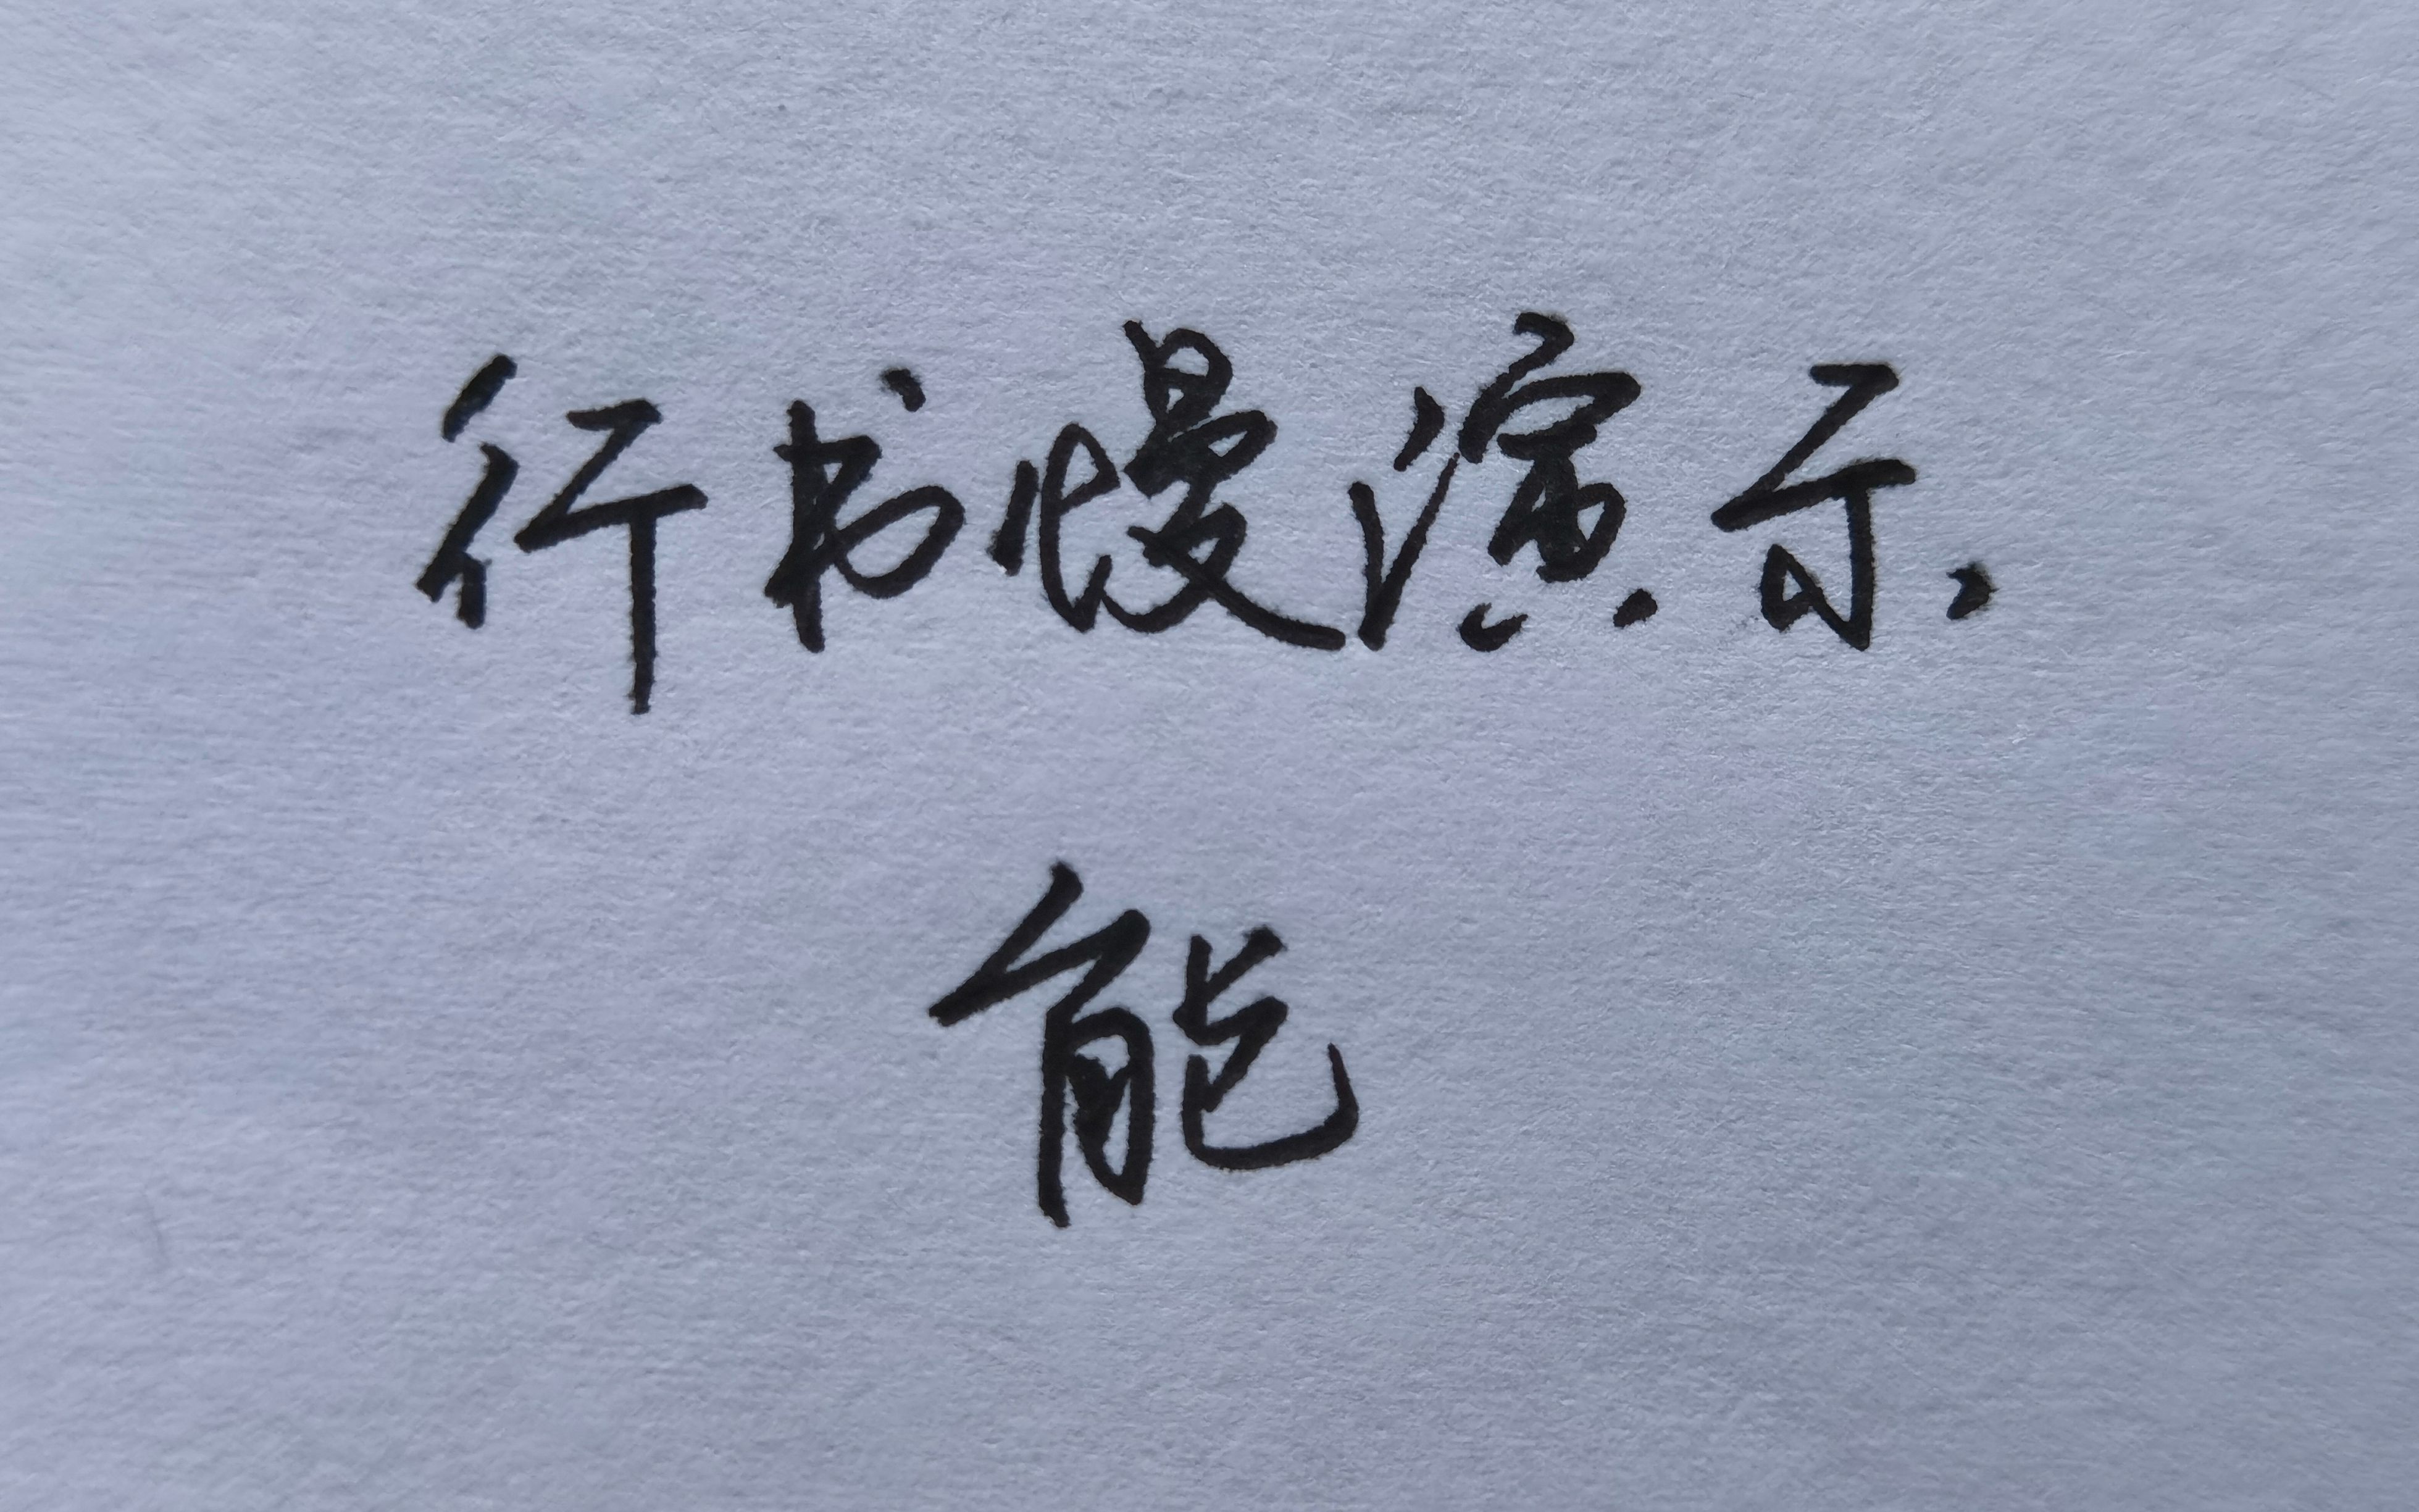 行书慢演示
能